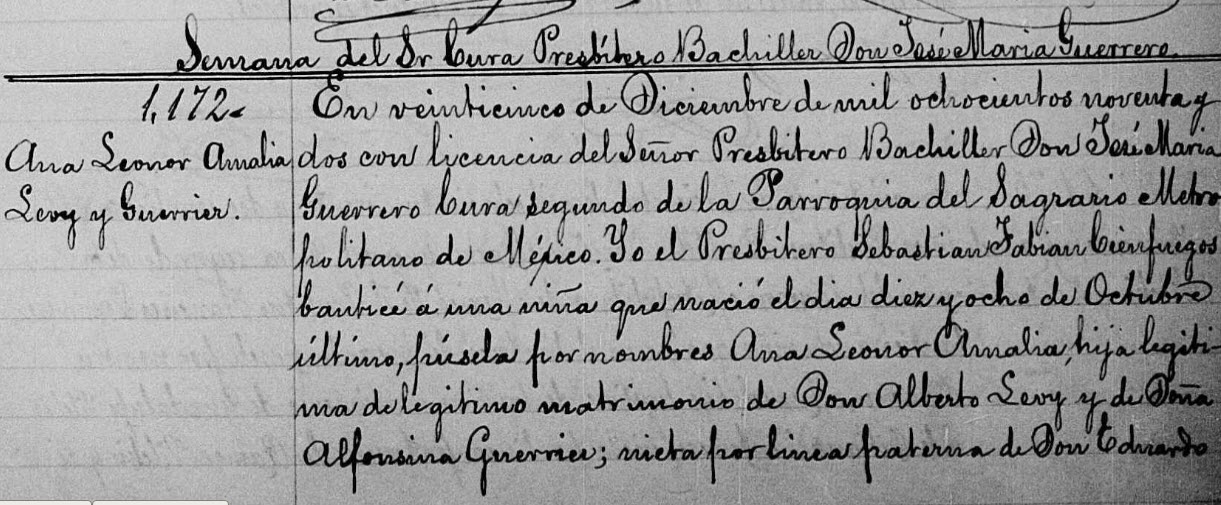 Semana del Sr Cura Presbítero Bachiller Don José Maria Guerrero.
1,172.
Ana Leonor Amalia
Levy y Guerrier.
En veinticinco de Diciembre de mil ochocientos noventa y
dos con licencia del Señor Presbitero Bachiller Don José Maria
Guerrero Cura segundo de la Parroquia del Sagrario Metro
politano de México. Yo el Presbitero Sebastian Fabian Cienfuegos
bauticé á una niña que nació el dia diez y ocho de Octubre
último, púsela por nombres Ana Leonor Amalia, hija legiti-
ma de legitimo matrimonio de Don Alberto Levy y de Doña
Alfonsina Guerrier; nieta por linea paterna de Don Eduardo